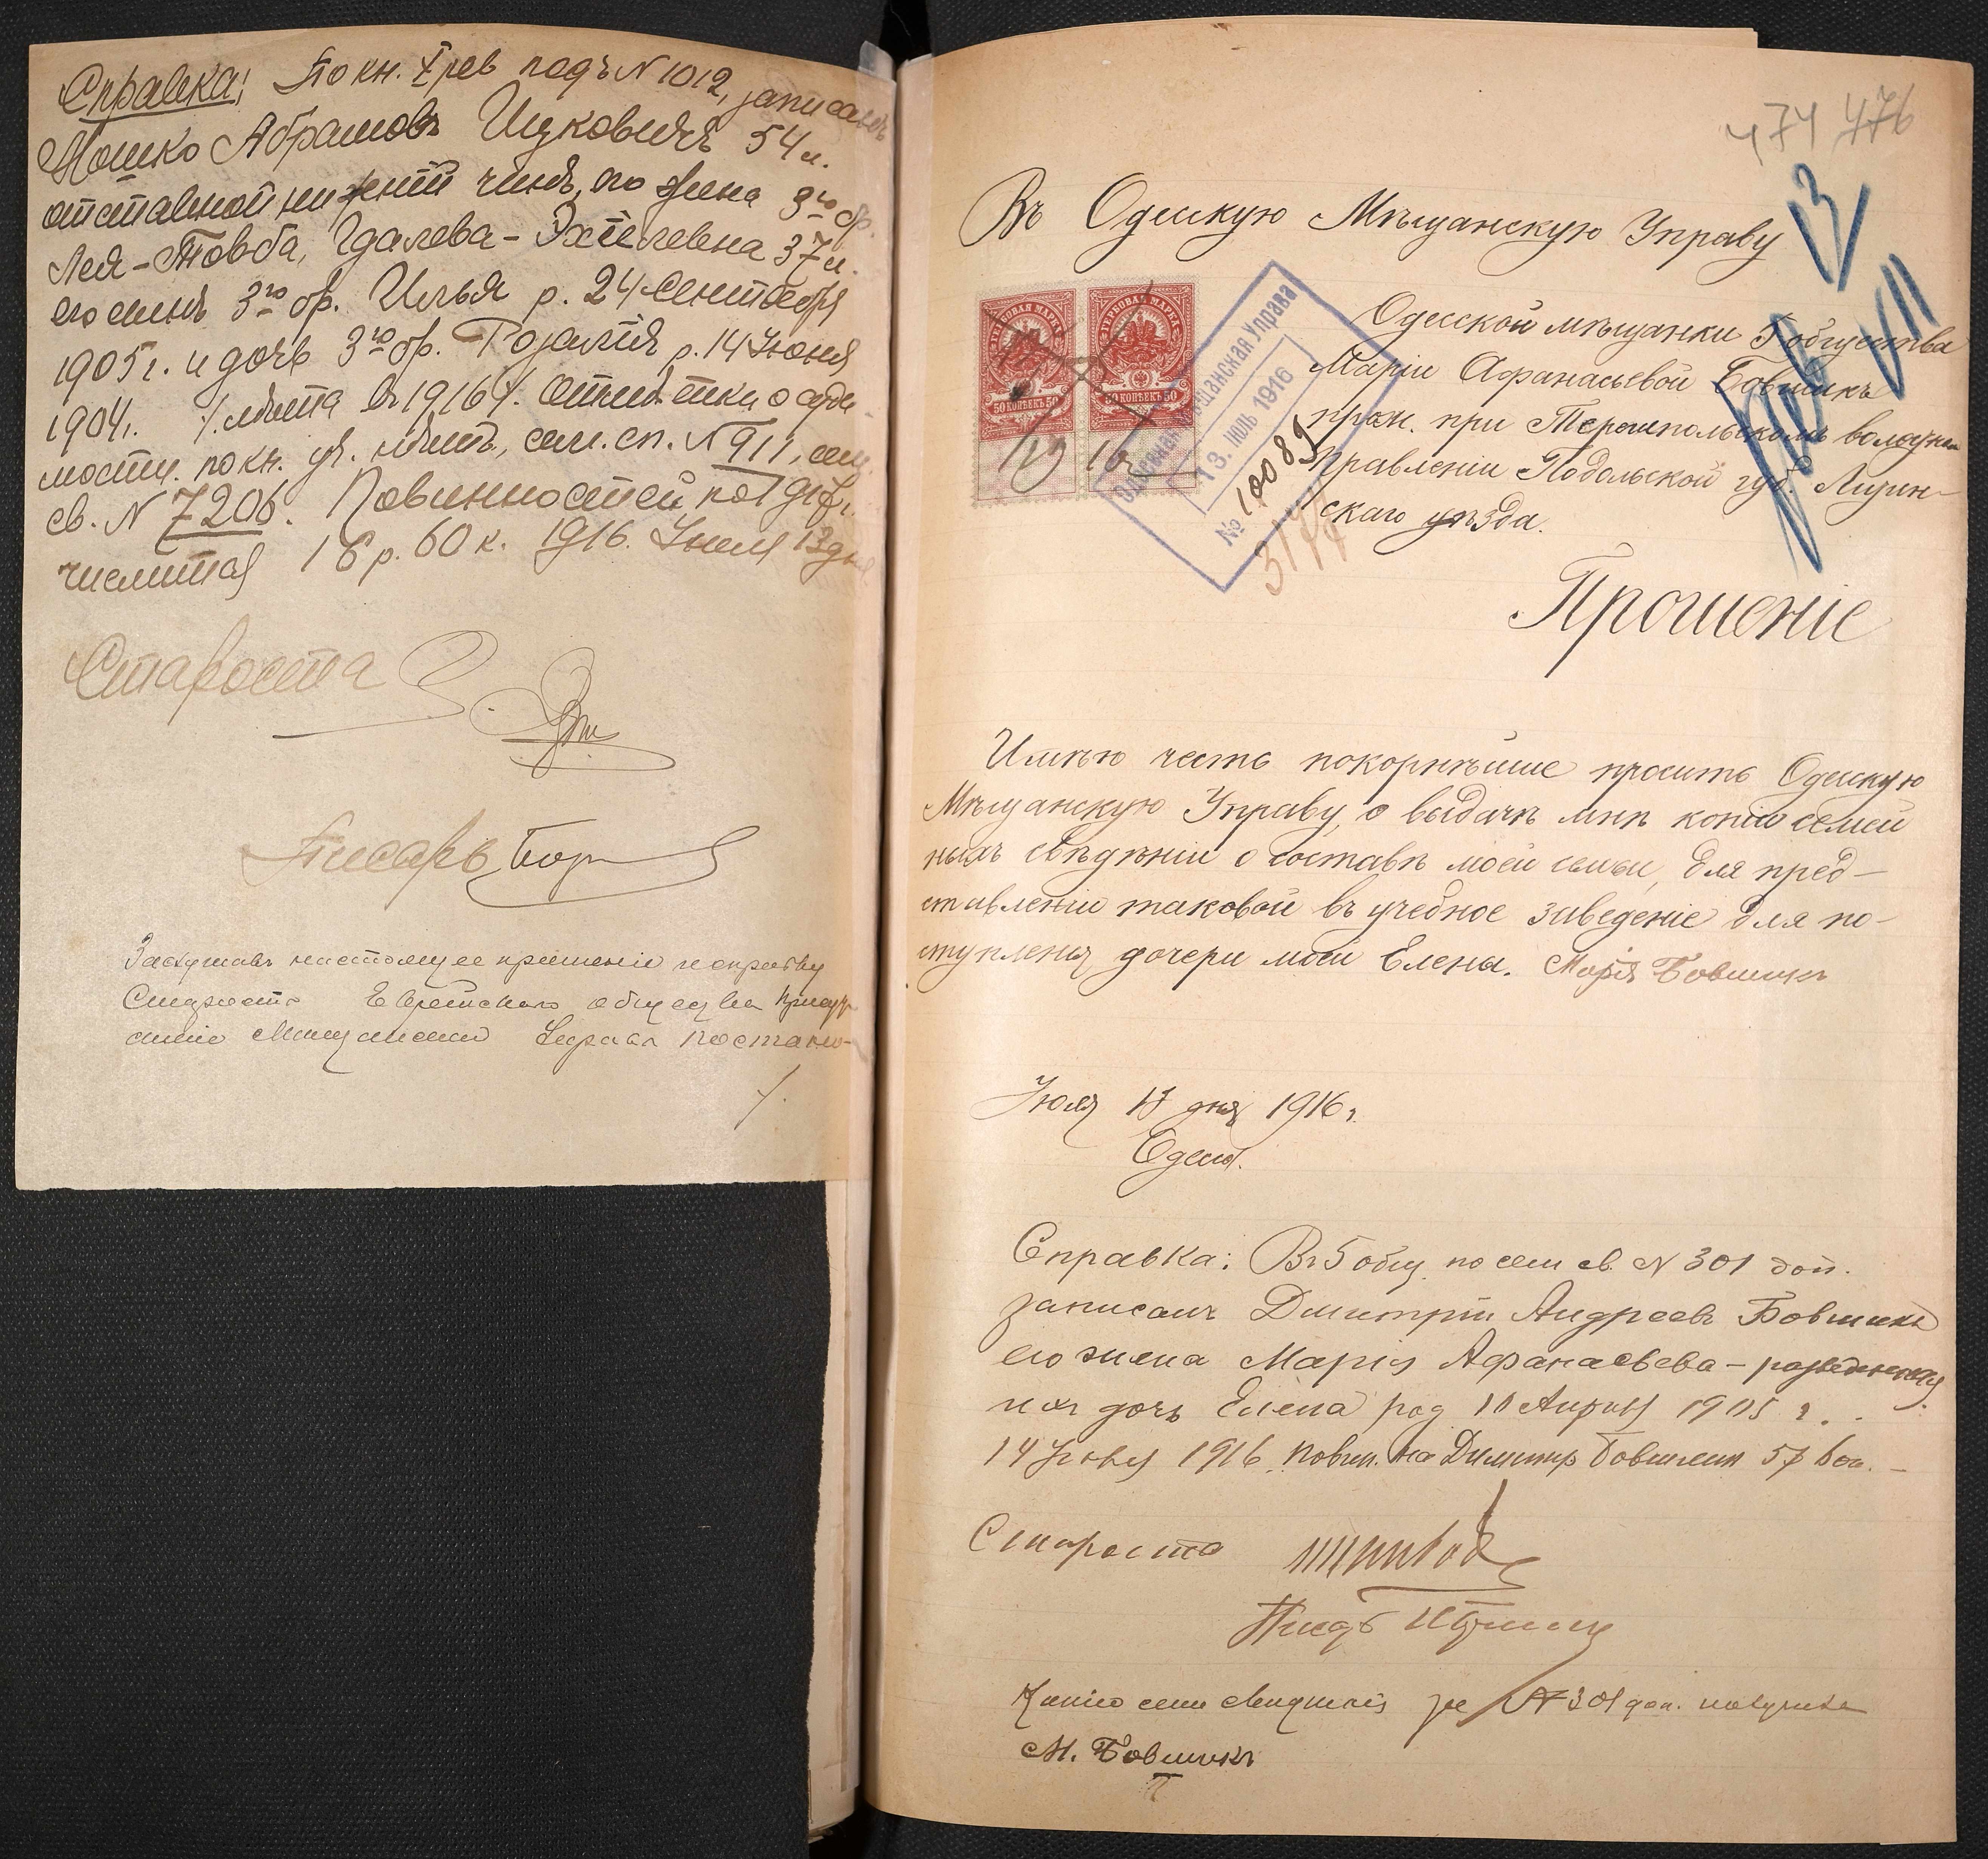 Справка: По кн. X рев подъ N 1012, записанъ
Мошко Абрамовъ Ицковичъ 54 л.
отставной нижній чинъ, его жена 3го бр.
Лея-Товба, Гдалева-Эхтелевна 37 л.
его сынъ 3го бр. Илья р. 24 Сентября
1905 г. и дочь 3го бр. Розалія р. 14 Іюня
1904 г. лѣта въ 1916 г. Отмѣтки о суди-
мости по кн. N 911, сем.
св. N 7206. Повинностей по 1917 г.
числится 16 р. 60 к. 1916. Іюля 13 дня
Староста
Писарь
Заслушавъ настоящее прошеніе и справку
Старосты Еврейскаго общества Присут-
ствіе Мѣщанской Управы Постано-
474 476
13
VII
Въ Одесскую Мѣщанскую Управу
Одесской мѣщанки 5 общества
Маріи Афанасьевой Бовшикъ
прож. при волостномъ
Правленіи Подольской губ. Литин-
скаго уѣзда.
ГЕРБОВАЯ МАРКА ГЕРБОВАЯ МАРКА
50 КОПѢЕКЪ 50 50 КОПѢЕКЪ 50
Одесская Мѣщанская Управа
13. ІЮЛЬ 1916
№ 10089
3177
Прошеніе
Имѣю честь покорнѣйше просить Одесскую
Мѣщанскую Управу, о выдачѣ мнѣ копіи семей
ныхъ свѣдѣній о составѣ моей семьи, для пред-
ставленія таковой въ учебное заведеніе для по-
ступленія дочери моей Елены. Марія Бовшикъ
Іюля 13 дня 1916 г.
Одесса.
Справка: Въ 5 общ. по сем св. N 301 доп.
записанъ Дмитрій Андреевъ Бовшикъ
его жена Марія Афанасьева - разведенная
ихъ дочь Елена род 11 Апрѣля 1905 г.
14 Іюля 1916. Повин. на Димитр Бовшикъ
Староста
Писарь
Копію сем свидѣт за N 301 доп. получила
М. Бовшикъ